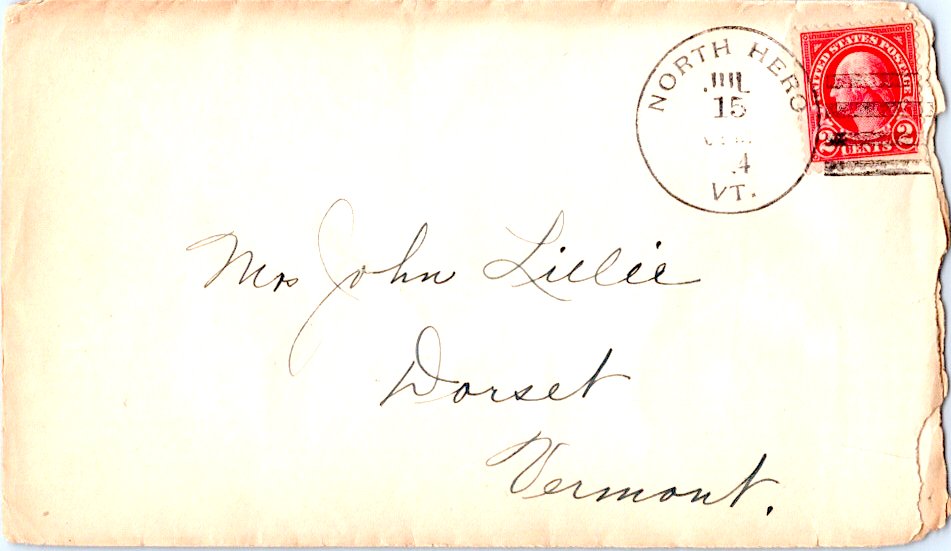 NORTH HERO
JUL
15
4
VT.
UNITED STATES POSTAGE
2 CENTS 2
Mrs John Lillie
Dorset
Vermont.